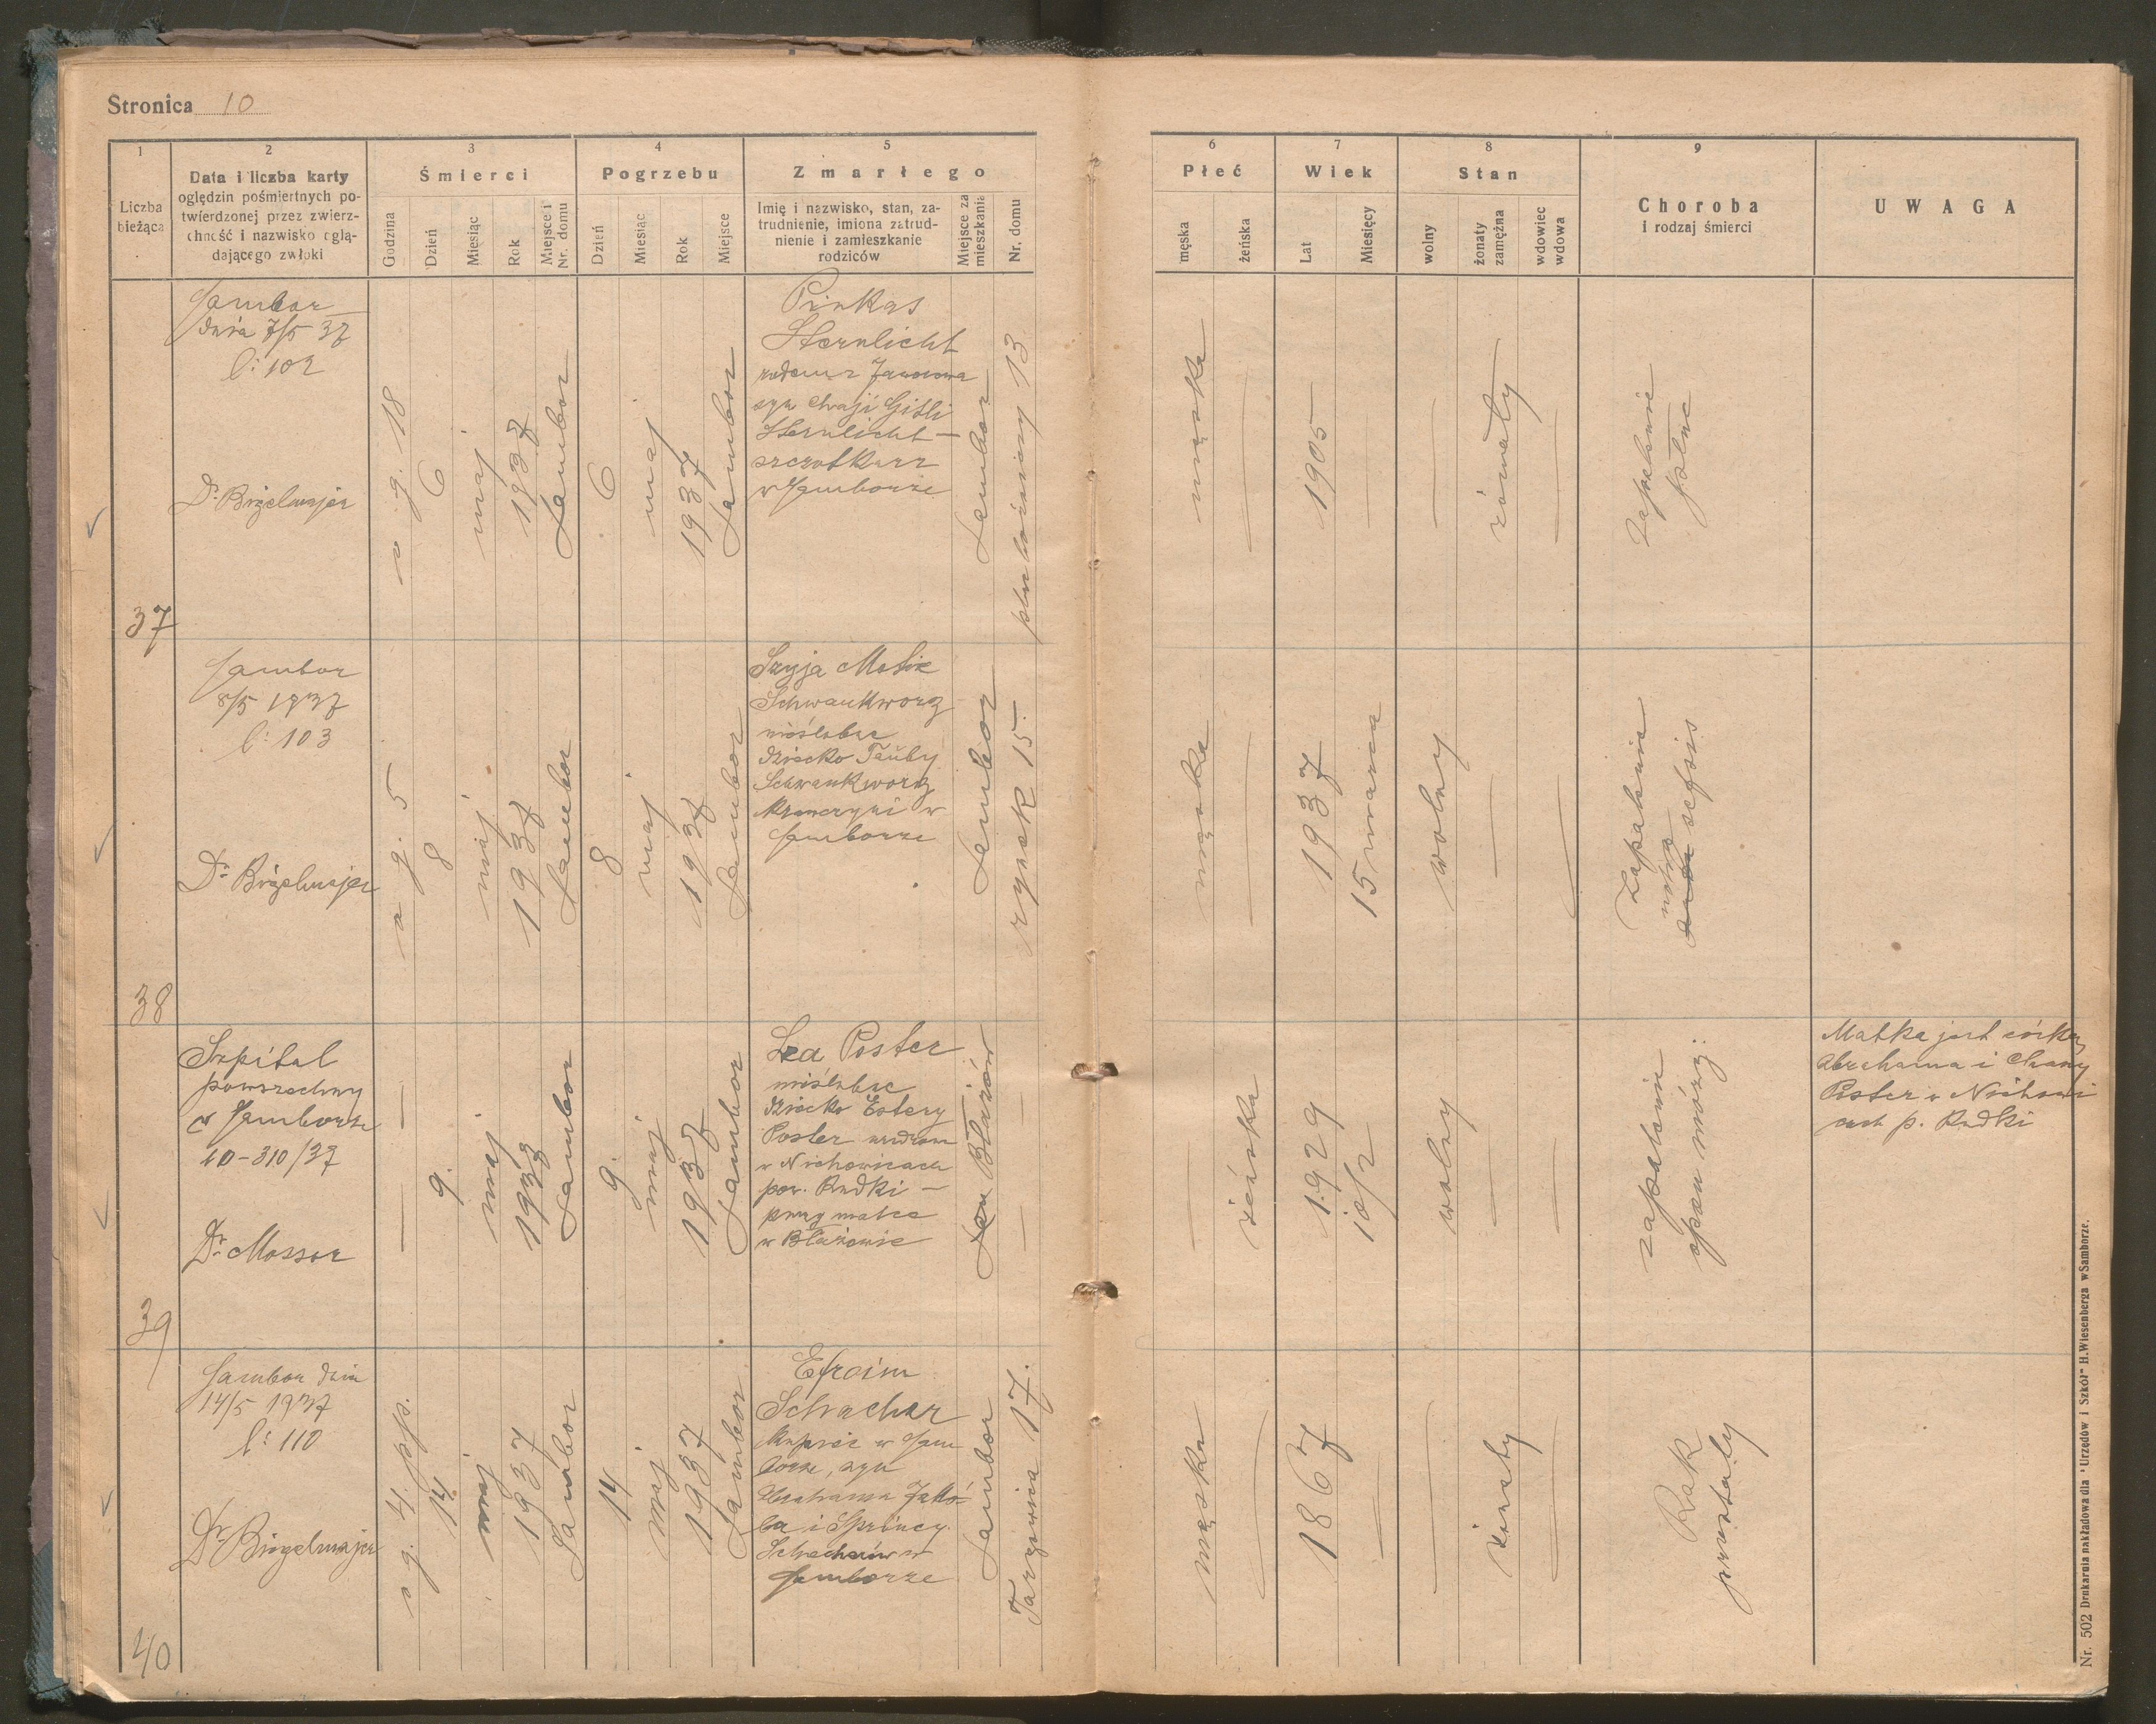 Stronica 10
1
Liczba
bieżąca
2
Data i liczba karty
oględzin pośmiertnych po-
twierdzonej przez zwierz-
chność i nazwisko oglą-
dającego zwłoki
3
Śmierci
Godzina
Dzień
Miesiąc
Rok
Miejsce i
Nr. domu
4
Pogrzebu
Dzień
Miesiąc
Rok
Miejsce
5
Zmarłego
Imię i nazwisko, stan, za-
trudnienie, imiona zatrud-
nienie i zamieszkanie
rodziców
Miejsce za
mieszkania
Nr. domu
6
Płeć
męska
żeńska
7
Wiek
Lat
Miesięcy
8
Stan
wolny
żonaty
zamężna
wdowiec
wdowa
9
Choroba
i rodzaj śmierci
UWAGA
37
Sambor
dnia 7/5 37
l: 102
Dr. Brigelmajer
o g. 18
6
maj
1937
Sambor
6
maj
1937
Sambor
Pinkas
Sternlicht
rodem z
syn Chaji Gitli
Sternlicht —
szczotkarz
w Samborze
Sambor
13
męska
—
1905
—
—
—
Zapalenie
płuc
38
Sambor
8/5 1937
l: 103
Dr. Brigelmajer
o g. 5
8
maj
1937
Sambor
8
maj
1937
Sambor
Szyja
Schwankworg
nieślubne
dziecko Tauby
Schwankworg
w
Samborze
Sambor
rynek 15.
męska
—
1937
15 marca
wolny
—
—
Zapalenie
39
Szpital
powszechny
w Samborze
40-310/37
Dr. Mosser
—
9.
maj
1937
Sambor
9.
maj
1937
Sambor
Lea Poster
nieślubne
dziecko Estery
Poster
w
pow. Rudki —
przy matce
w Błażowie
Błażów
—
—
żeńska
1929
10/2
wolny
—
—
zapalenie
opon mózg.
Matka jest córką
Abrahama i Chany
Poster w
p. Rudki
40
Sambor dnia
14/5 1937
l: 110
Dr Brigelmajer
o g. 4. pp.
14
maj
1937
Sambor
14
maj
1937
Sambor
Efroim
Schacher
kupiec w Sam
borze, syn
Abrahama Jakó-
ba i Sprincy
Schacherów w
Samborze
Sambor
Targowica 17.
męska
—
1867
—
—
żonaty
—
Rak
Nr. 502 Drukarnia nakładowa dla "Urzędów i Szkół" H. Wiesenberga w Samborze.